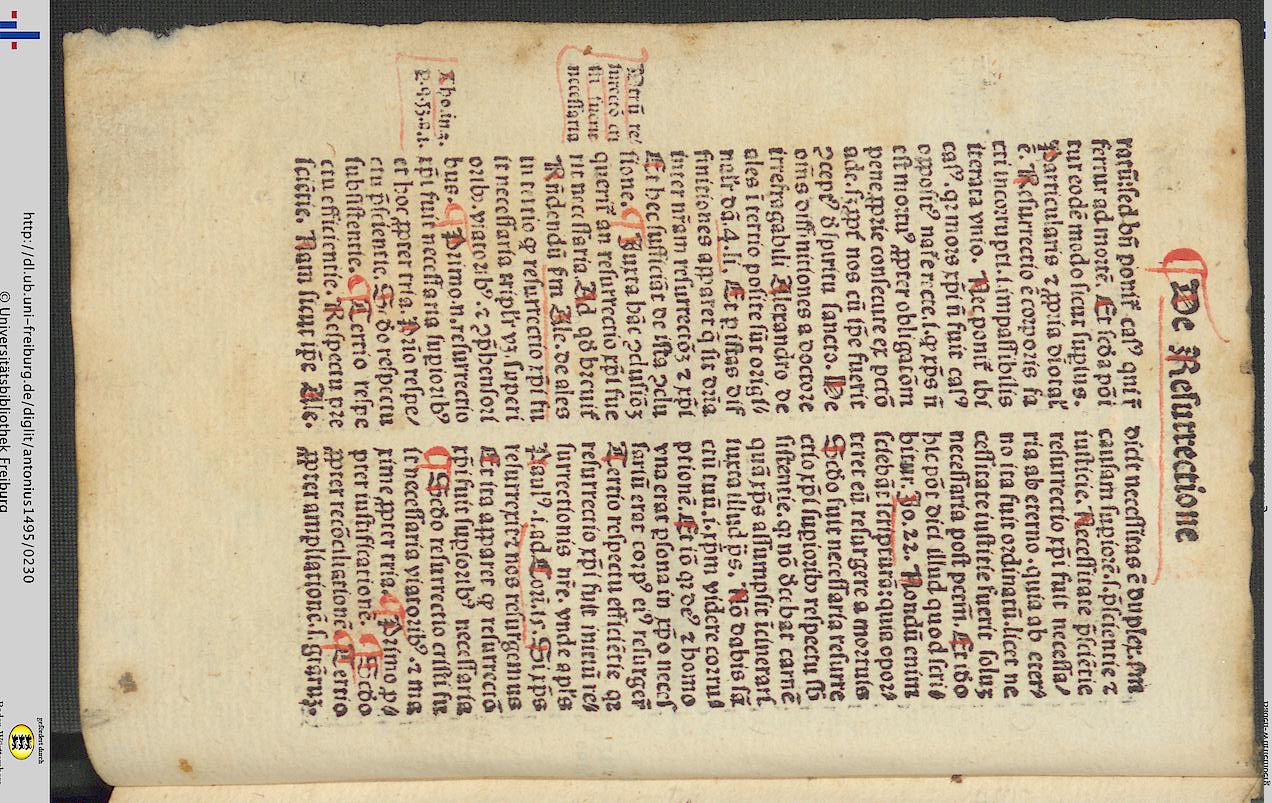 De Resurrectione
ratū: sed bn̄ ponit᷑ cāꝰ qui r̄
fertur ad mortē. Et scd̓a pōi
tur eodē modo sicut supius.
Particularis ⁊ ꝓpria diotal᷑
ē. Resurrectio ē corporis sa
cri incorrupti. i. impassibilis
iterata vnio. Nec ponit᷑ ibi
caꝰ. qr mors xp̄i n̄ fuit caꝰ
opposite nate recte. s. qꝫ xp̄s n̄
est mortuꝰ ꝓpter obligatōm
pene, ꝓprie consecute ex pctō
ade. s. ꝓpt᷑ nos cū ip̄e fuerit
ꝯceptꝰ d̓ spiritu sancto. De
oīus diffinitiones a doctore
irrefragabili Alexandro de
ales ī tertio posite sūt origi⸗
nal᷑r dā. 4. li. Et p istas dif
finitiones apparet q̄ sit dr̄ia
inter nr̄am resurrectōꝫ ⁊ xp̄i
Et hec sufficiāt de ista ꝯclu
sione. Iuxta hāc ꝯclusiōꝫ
querit᷑ an resurrectio xp̄i fue
rit necessaria. Ad qd̓ breuit᷑
Rn̄dendū fm Ale. de ales
in tertio qꝫ resurrectio xp̄i fu
it necessaria tripl᷑r vꝫ superi
orib. viatorib ⁊ ꝯp̄hensori
bus. Primo. n. resurrectio
xp̄i fuit necessaria supiorib
et hoc ꝓpter tria. Prio respe⸗
ctu p̄scientie. Scd̓o respectu
subsistentie. Tertio respe
ctu efficientie. Respectu p̄re
sciētie. Nam sicut ip̄e Ale.
Vtrū re⸗
surrectō cri
sti fuerit
necessaria
Tho. in. 3.
p. q. 53. a. 1.
dicit necessitas ē duplex. Om̄
causam supiorē. s. p̄scientie ⁊
iusticie. Necessitate p̄sciētie
resurrectio xp̄i fuit necessa⸗
ria ab eterno. quia ab eter⸗
no ita fuit ordinatū licet ne
cessitate iustitie fuerit soluꝫ
necessaria post pctm̄. Et iō
hic pōt dici illud quod scri⸗
bitur. Jo. 22. Nondū enim
sciebāt scripturā: quia opor⸗
teret eū resurgere a mortuis
Scd̓o fuit necessaria resurre
ctio xp̄i supiorib respectu sb̄
sistentie. qr nō debebat carnē
quā xp̄s assumpsit icinerari
iuxta illud p̄s. Nō dabis sā
ctū tuū. i. xp̄m videre corrup
ptionē. Et iō qr deꝰ ⁊ homo
vna erat p̄sona in xp̄o neces
sariū erat corpꝰ eiꝰ resurgēr
Tertio respectu efficiētie qꝫ
resurrectio xp̄i fuit initiū re⸗
surrectionis nr̄e. vnde aplꝰs
Paulꝰ. i. ad Cori. 15. Si xp̄s
resurrexit ⁊ nos resurgemus
Et ita apparet qꝫ resurrectō
xp̄i fuit supiorib necessaria
Scd̓o resurrectio cristi fu
it necessaria viatorib ⁊ ma
xime ꝓpter tria. Primo p⸗
pter iustificationē. Scd̓o
ꝓpter recōciliationē Tertio
ꝓpter ampliationē. s. gratiaꝫ.
http://dl.ub.uni-freiburg.de/diglit/antonius1495/0230
© Universitätsbibliothek Freiburg
gefördert durch